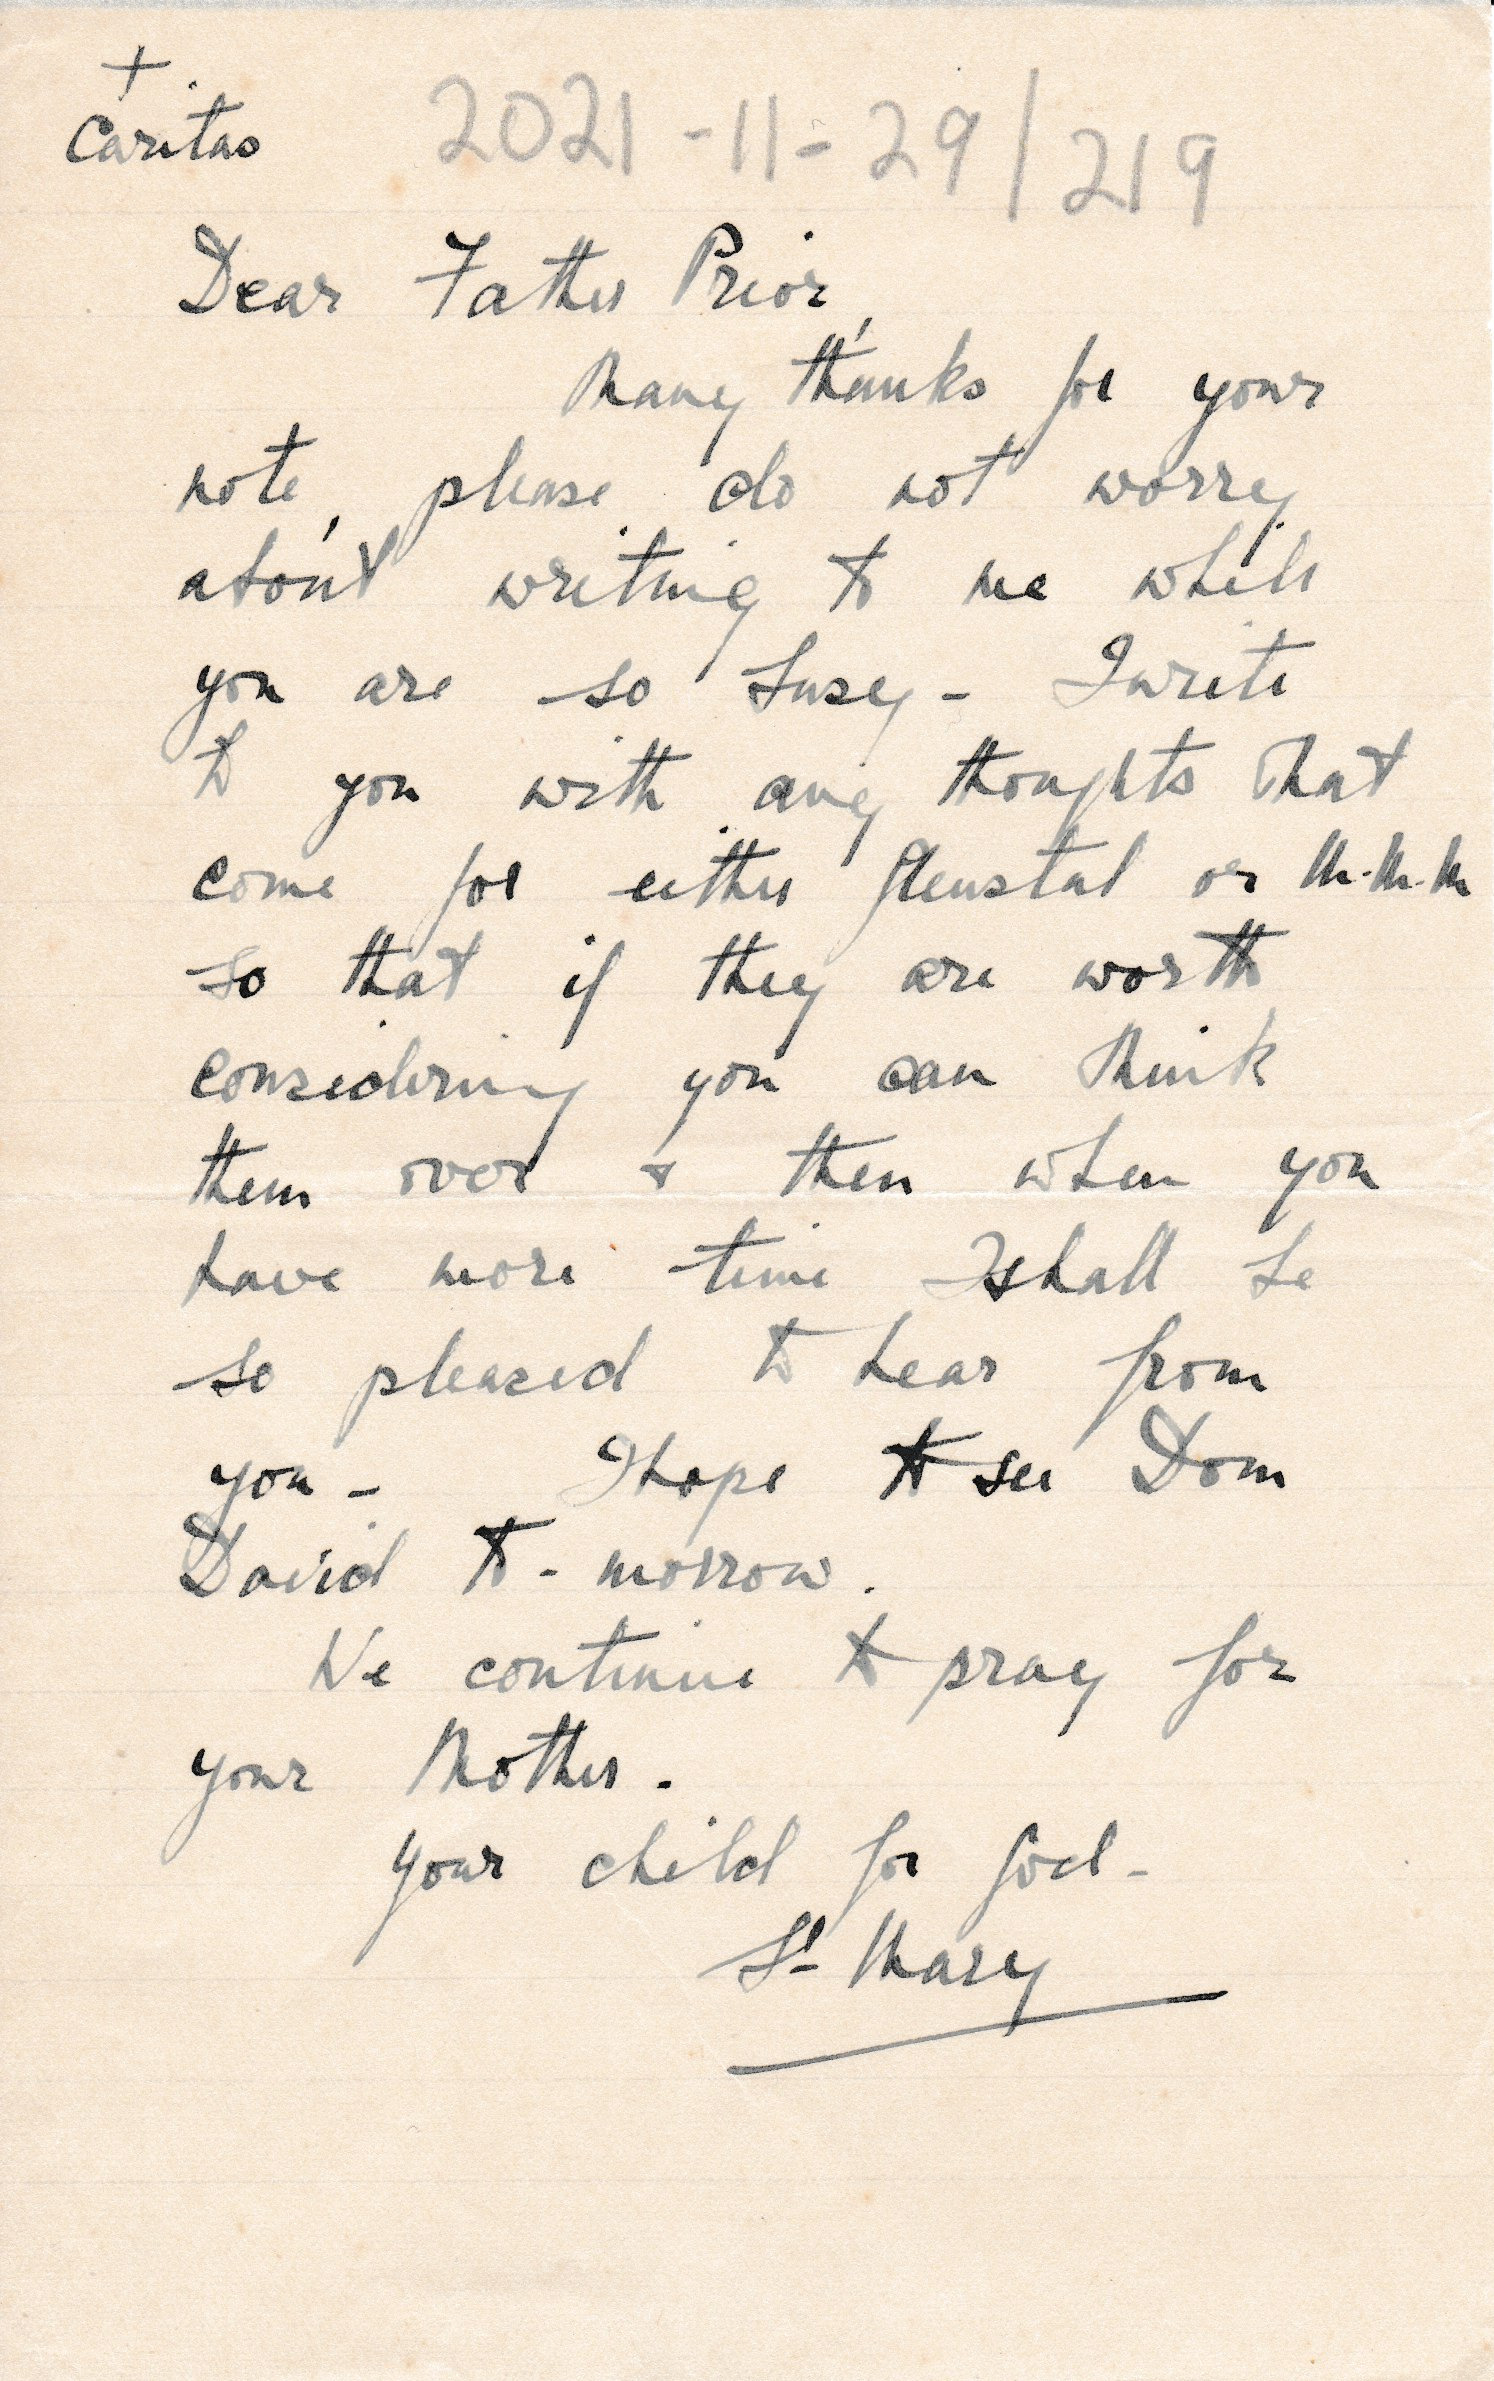 +
Caritas 2021-11-29/219
Dear Father Prior,
Many thanks for your
note, please do not worry
about writing to me while
you are so busy - I write
to you with any thoughts that
come for either Glenstal or M.M.M
so that if they are worth
considering you can think
them over & then when you
have more time I shall be
so pleased to hear from
you - I hope to see Dom
David to-morrow.
We continue to pray for
your Mother.
Your child for God -
Sr Mary